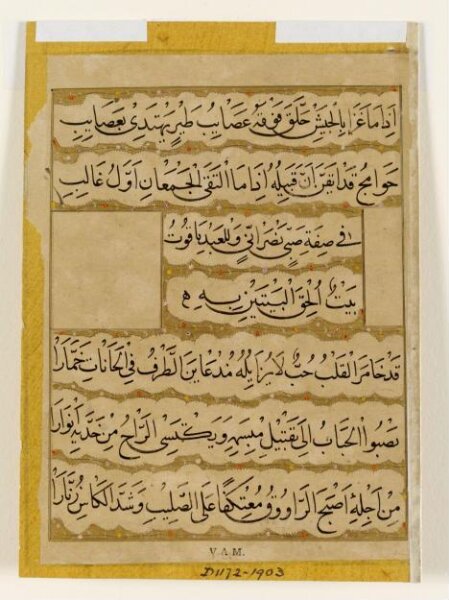 اِذَا مَا غَزَا بِالْجَيْشِ حَلَّقَ فَوْقَهُ عَصَايِبُ طَيْرٍ يَهْتَدِى بِعَصَايِبِ
جَوَانِحَ قَدْ اَيْقَنَّ اَنَّ قَبِيلَهُ اِذَا مَا الْتَقَى الْجَمْعَانِ اَوَّلُ غَالِبِ
فى صِفَةِ صَبِىٍّ نَصْرَانِىٍّ وَلِلْعَبْدِ يَاقُوت
بَيْتٌ اُلْحِقَ الْبَيْتَيْنِ بِهِ
قَدْ خَامَرَ الْقَلْبَ حُبٌّ لَا يُزَايِلُهُ مُذْ عَايَنَ الطَّرْفُ فِى الْحَانَاتِ خَمَّارَا
يَصْبُوا الْحَبَابُ اِلَى تَقْبِيلِ مَبْسِمِهِ وَيَكْتَسِى الرَّاحُ مِنْ خَدَّيْهِ اَنْوَارَا
مِنْ اَجْلِهِ اَصْبَحَ الرَّاوُوقُ مُعْتَكِفًا عَلَى الصَّلِيبِ وَشَدَّ الْكَاسُ زُنَّارَا
V.A.M.
D.1172-1903